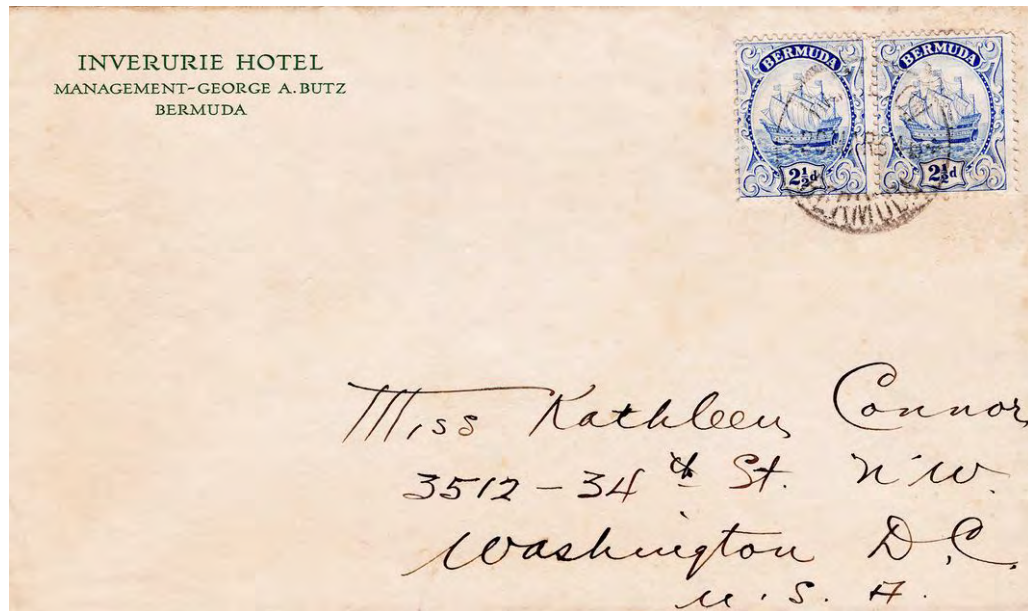 INVERURIE HOTEL
MANAGEMENT-GEORGE A. BUTZ
BERMUDA
BERMUDA
2½d
BERMUDA
2½d
BERMUDA
Miss Kathleen Connor
3512-34th St. N.W.
Washington D.C.
U.S.A.